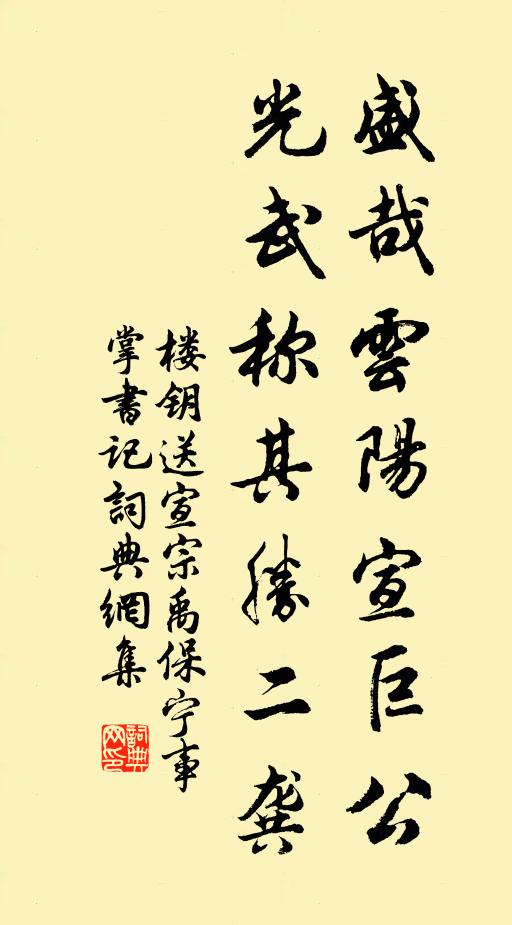 盛哉雲陽宣巨公
光武称其勝二龚
楼钥送宣宗禹保宁事
掌書记詞典網集
詞典
网印